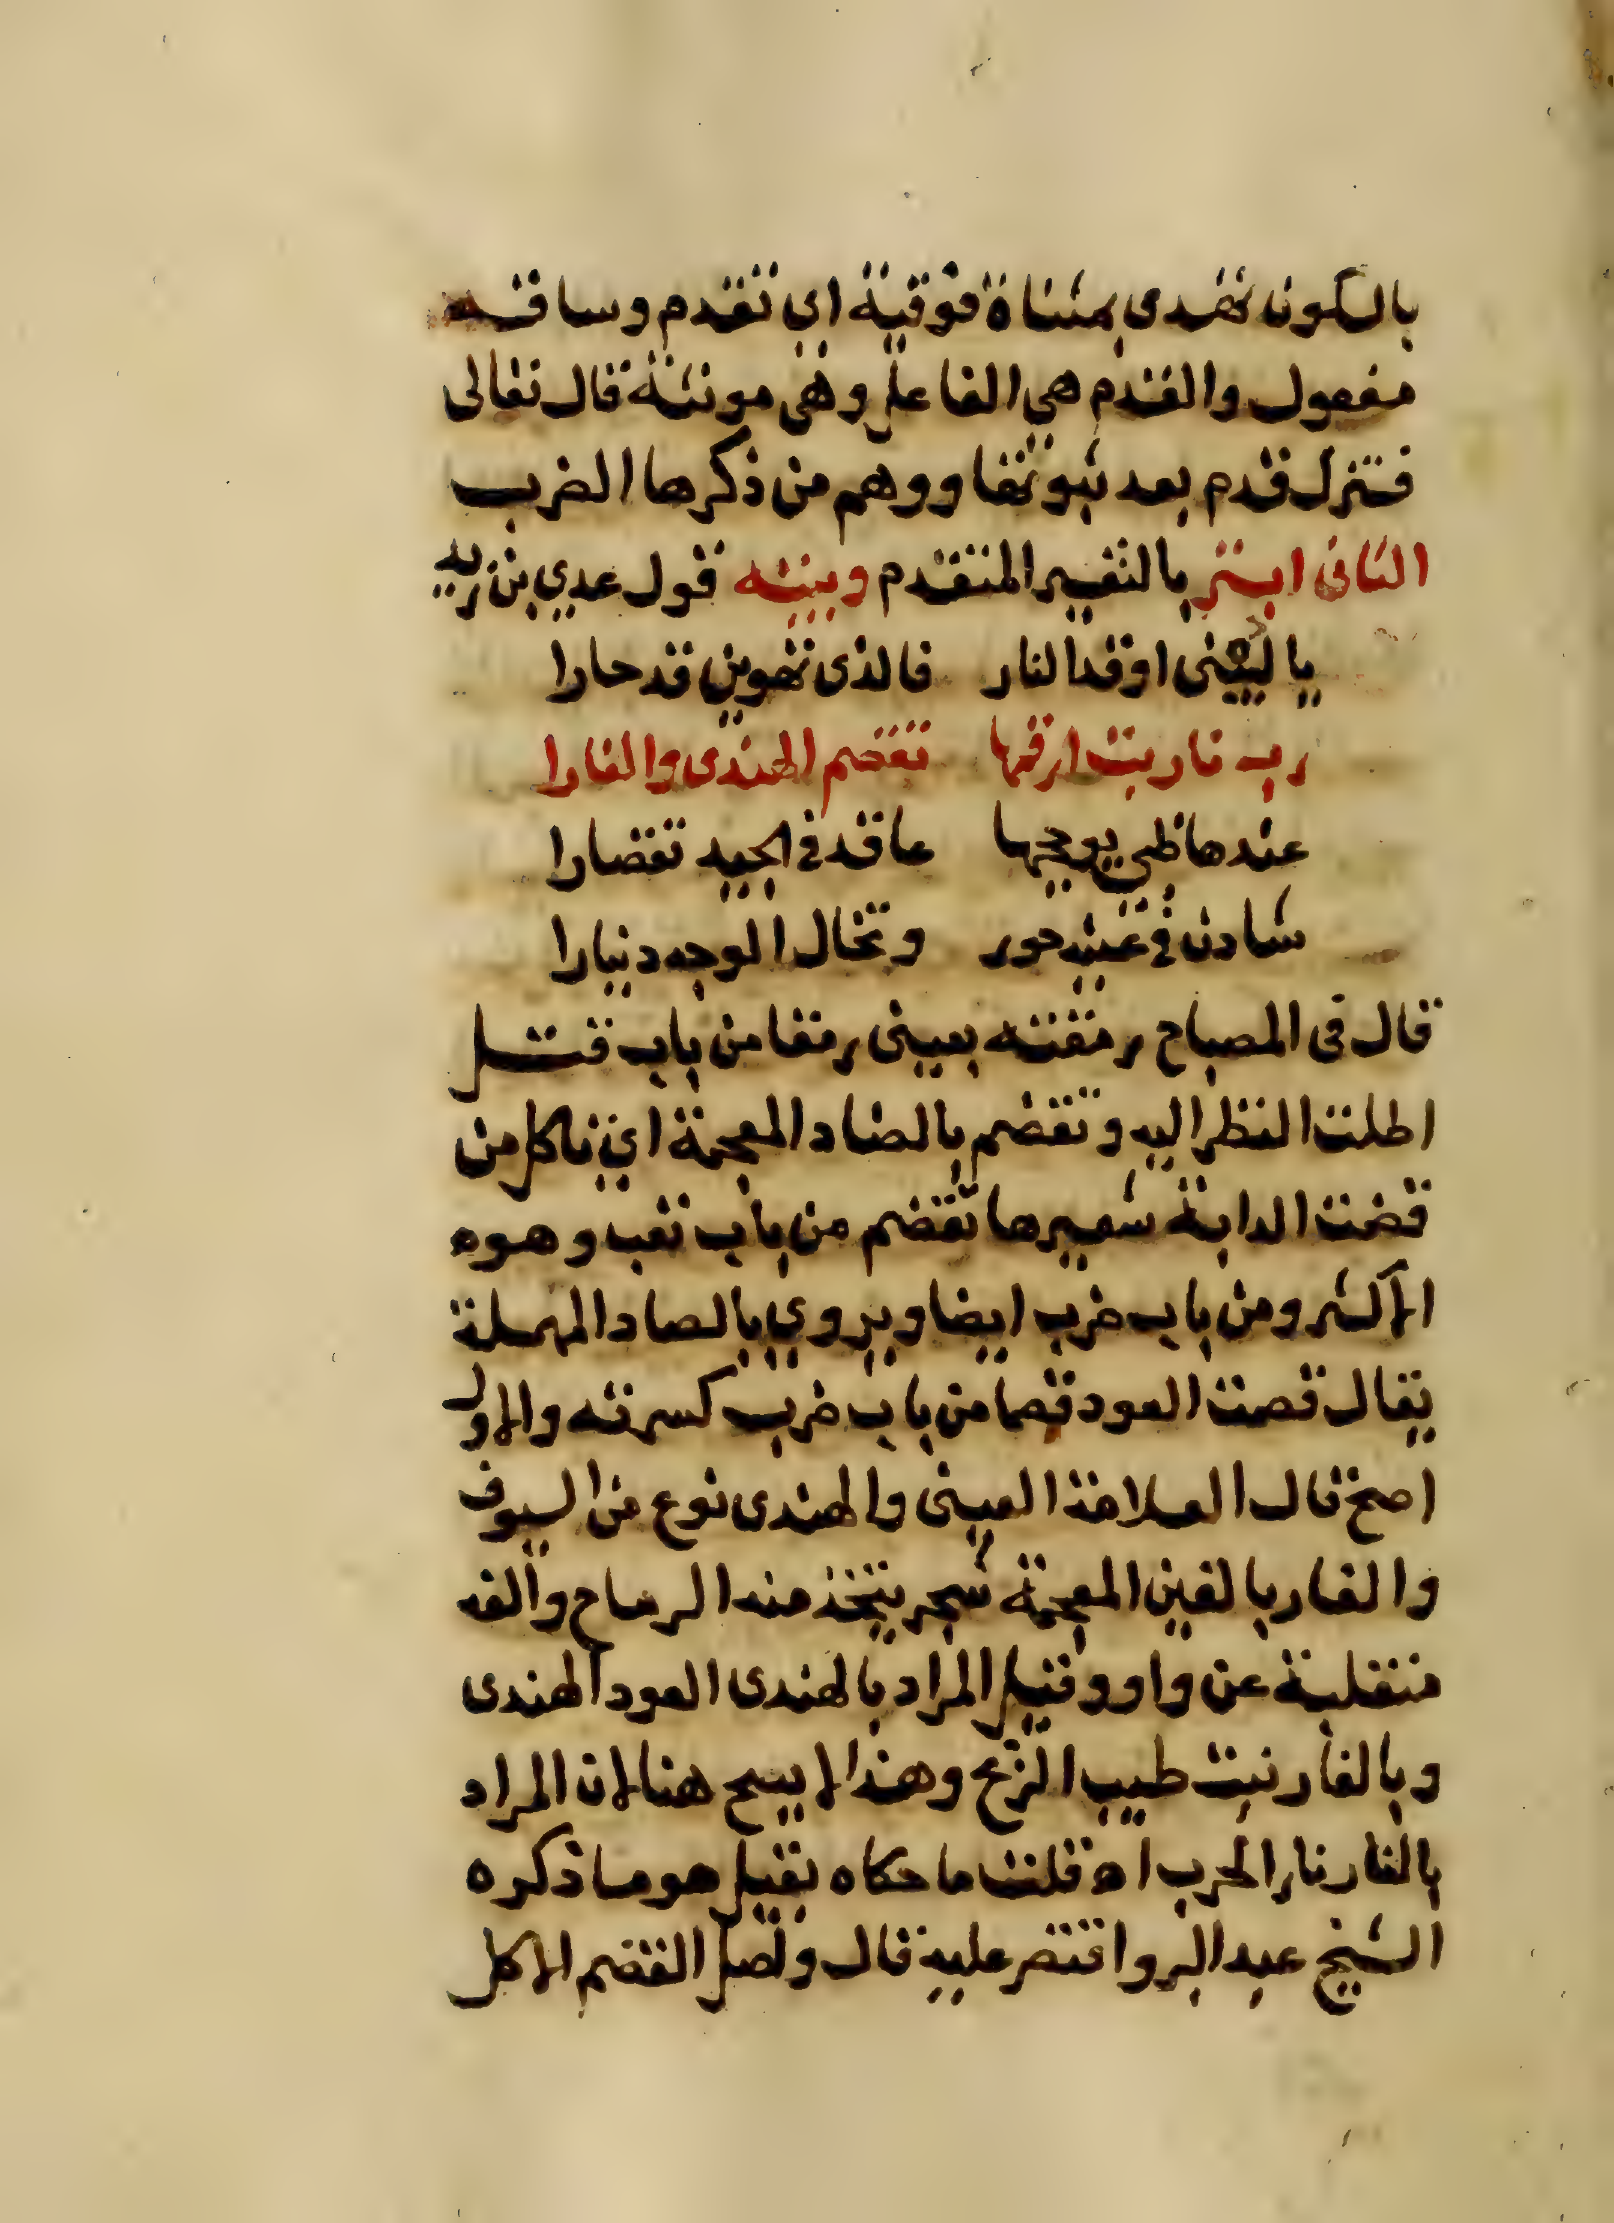 بالسكون تهدى بمثناة فوقية اي تقدم وساقه
مفعول والقدم هي الفاعل وهي مونثة قال تعالى
فتزل قدم بعد ثبوتها ووهم من ذكرها الضرب
الثاني ابتر بالتفسير المتقدم وبيته قول عدي بن زيد
يا لبينى اوقد النار فالذى تهوين قد حارا
رب نار بت ارمقها تقضم الهندى والغارا
عندها ظبي يوججها عاقد في الجيد تقصارا
شادن في عينه حور وتخال الوجه دينارا
قال في المصباح رمقته بعينى رمقا من باب قتل
اطلت النظر اليه وتقضم بالضاد المعجمة اي تاكل من
قضمت الدابة شعيرها تقضم من باب تعب وهوه
الاكثر ومن باب ضرب ايضا ويروي بالصاد المهملة
يقال قصمت العود قصما من باب ضرب كسرته والاول
اصح قال العلامة العينى والهندى نوع من السيوف
والغار بالغين المعجمة شجر يتخذ منه الرماح والفه
منقلبة عن واو وقيل المراد بالهندى العود الهندى
وبالغار نبت طيب الريح وهذا لا يسح هنا لان المراد
بالنار نار الحرب اه قلت ما حكاه بقيل هو ما ذكره
الشيخ عبد البر واقتصر عليه قال واصل القضم الاكل